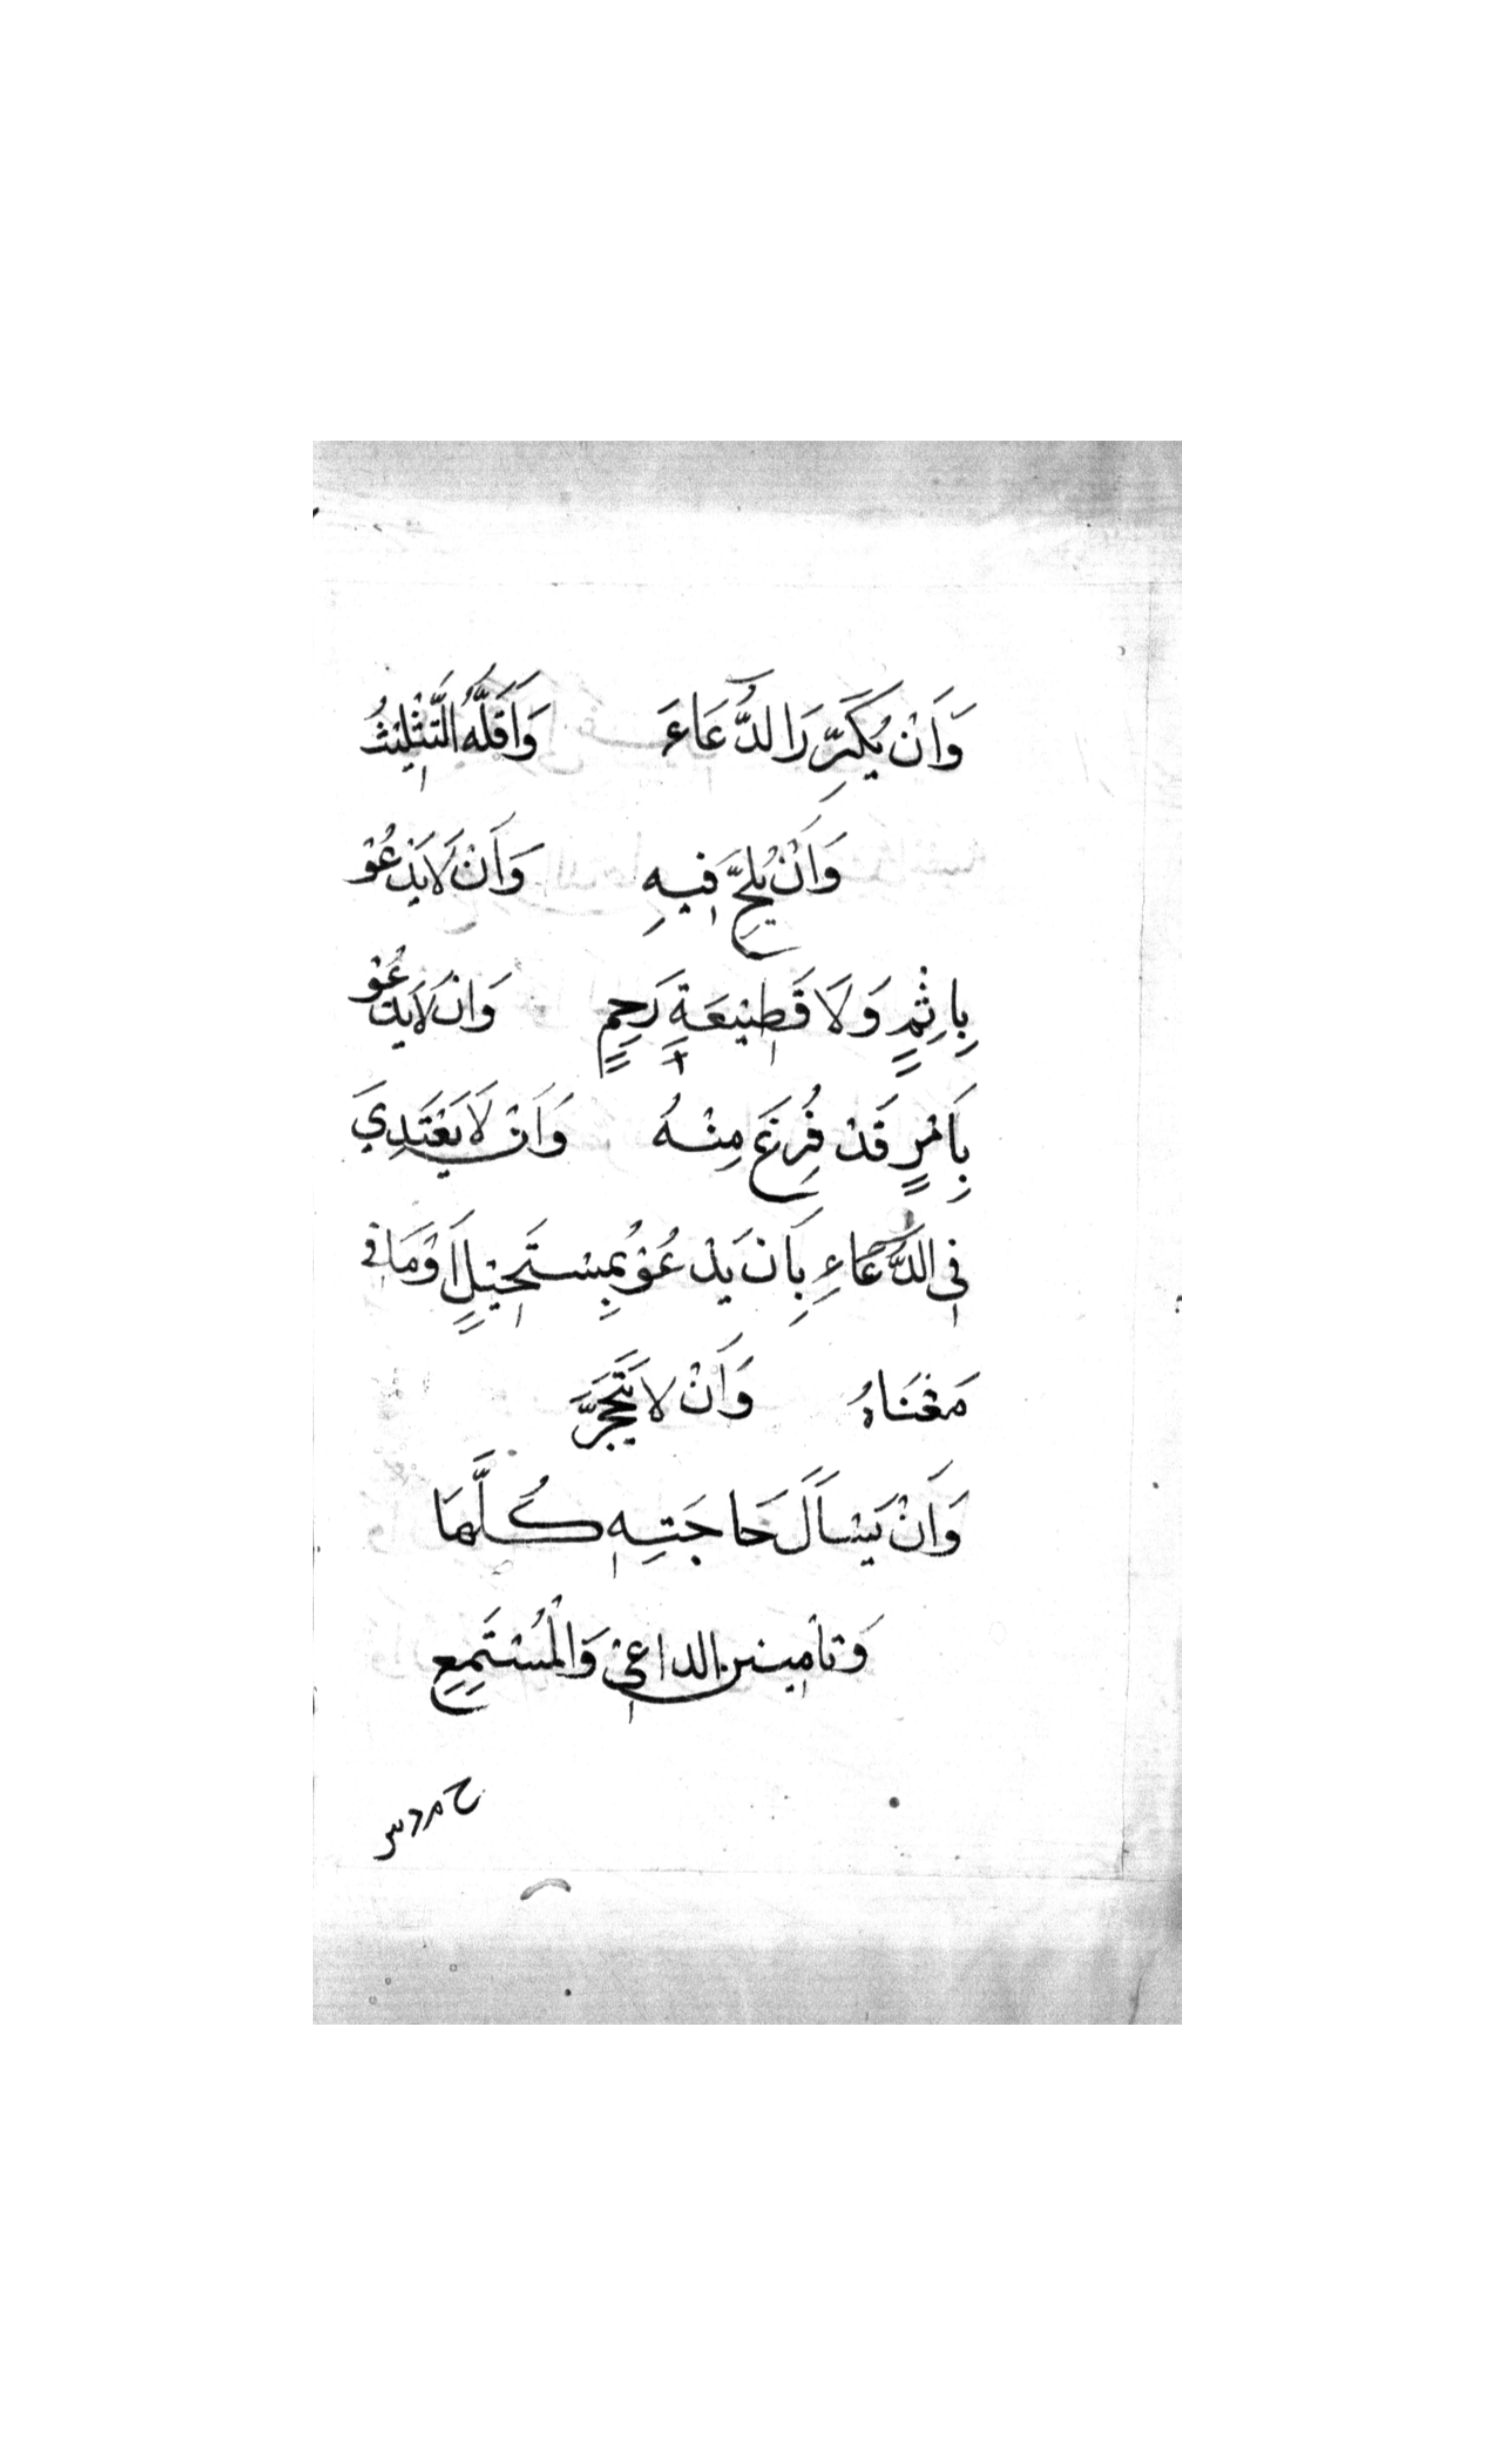 وَاَنْ يُكَرِّرَ الدُّعَاءَ وَاَقَلُّهُ التَّثْلِيْثُ
وَاَنْ يُلِحَّ فِيْهِ وَاَنْ لَا يَدْعُوَ
بِاِثْمٍ وَلَا قَطِيْعَةِ رَحِمٍ وَاَنْ لَا يَدْعُوَ
بِاَمْرٍ قَدْ فُرِغَ مِنْهُ وَاَنْ لَا يَعْتَدِيَ
فِى الدُّعَاءِ بِاَنْ يَدْعُوْ بِمُسْتَحِيْلٍ اَوْ مَا فِى
مَعْنَاهُ وَاَنْ لَا يَتَحَجَّرَ
وَاَنْ يَسْاَلَ حَاجَتِهٖ كُلَّهَا
وَتَامِيْن الداعِىْ وَالْمُسْتَمِعِ